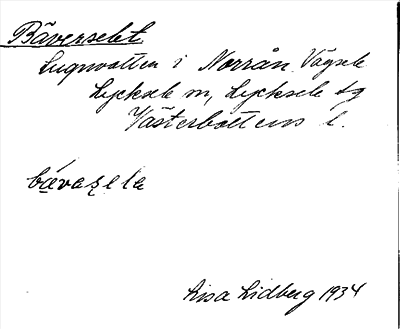 Bäverselet
Lugnvatten i Norrån. Vägsele
Lycksele sn, Lycksele tg
Västerbottens l.
bävaʂela
Lisa Lidberg 1934